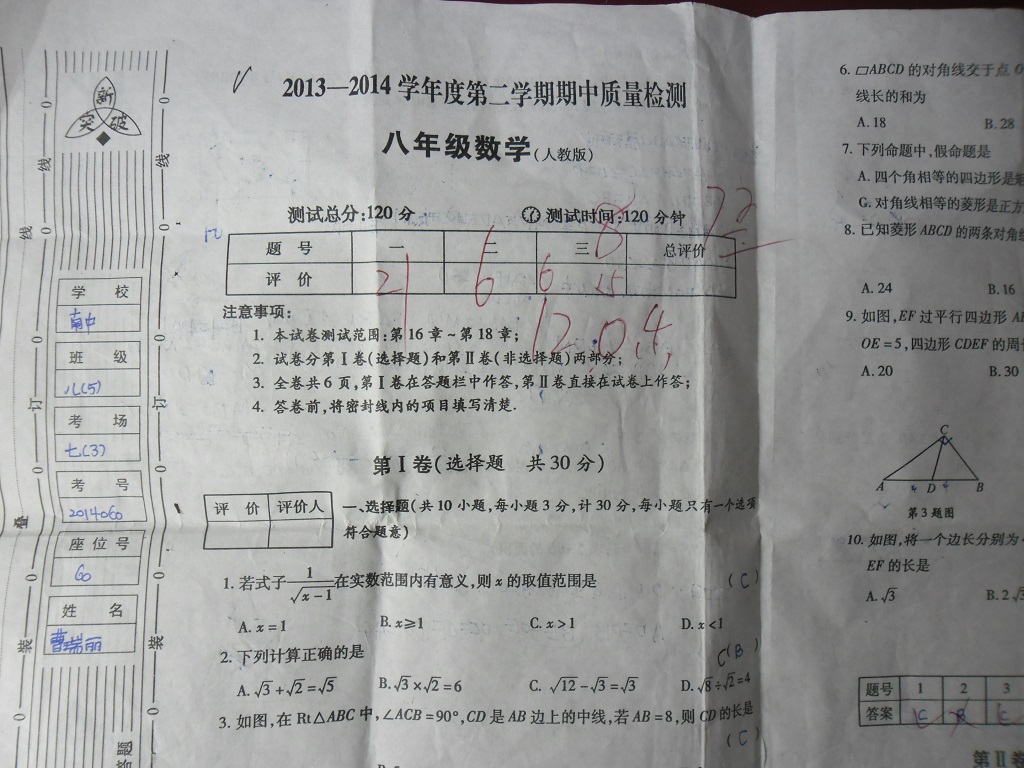 新
突 破
2013—2014学年度第二学期期中质量检测
八年级数学(人教版)
测试总分:120分 测试时间:120分钟
72
题 号 一 二 三 总评价
评 价 21 6 6
注意事项:
1. 本试卷测试范围:第16章~第18章;
2. 试卷分第Ⅰ卷(选择题)和第Ⅱ卷(非选择题)两部分;
3. 全卷共6页,第Ⅰ卷在答题栏中作答,第Ⅱ卷直接在试卷上作答;
4. 答卷前,将密封线内的项目填写清楚.
学 校
南中
班 级
八(5)
考 场
七(3)
考 号
2014060
座位号
60
姓 名
曹瑞丽
线 线
订 订
叠
装 装
答题
第Ⅰ卷(选择题 共30分)
评 价 评价人
一、选择题(共10小题,每小题3分,计30分,每小题只有一个选项
符合题意)
1. 若式子1/√x-1在实数范围内有意义,则x的取值范围是 (C)
A. x=1 B. x⩾1 C. x>1 D. x<1
2. 下列计算正确的是 C(B)
A. √3+√2=√5 B. √3×√2=6 C. √12-√3=√3 D. √8÷√2=4
3. 如图,在Rt△ABC中,∠ACB=90°,CD是AB边上的中线,若AB=8,则CD的长是
(C)
6. ▱ABCD的对角线交于点O
线长的和为
A. 18 B. 28
7. 下列命题中,假命题是
A. 四个角相等的四边形是矩
C. 对角线相等的菱形是正方
8. 已知菱形ABCD的两条对角线
A. 24 B. 16
9. 如图,EF过平行四边形AB
OE=5,四边形CDEF的周长
A. 20 B. 30
C
A D B
第3题图
10. 如图,将一个边长分别为
EF的长是
A. √3 B. 2√3
题号 1 2 3
答案 C B C
第Ⅱ卷